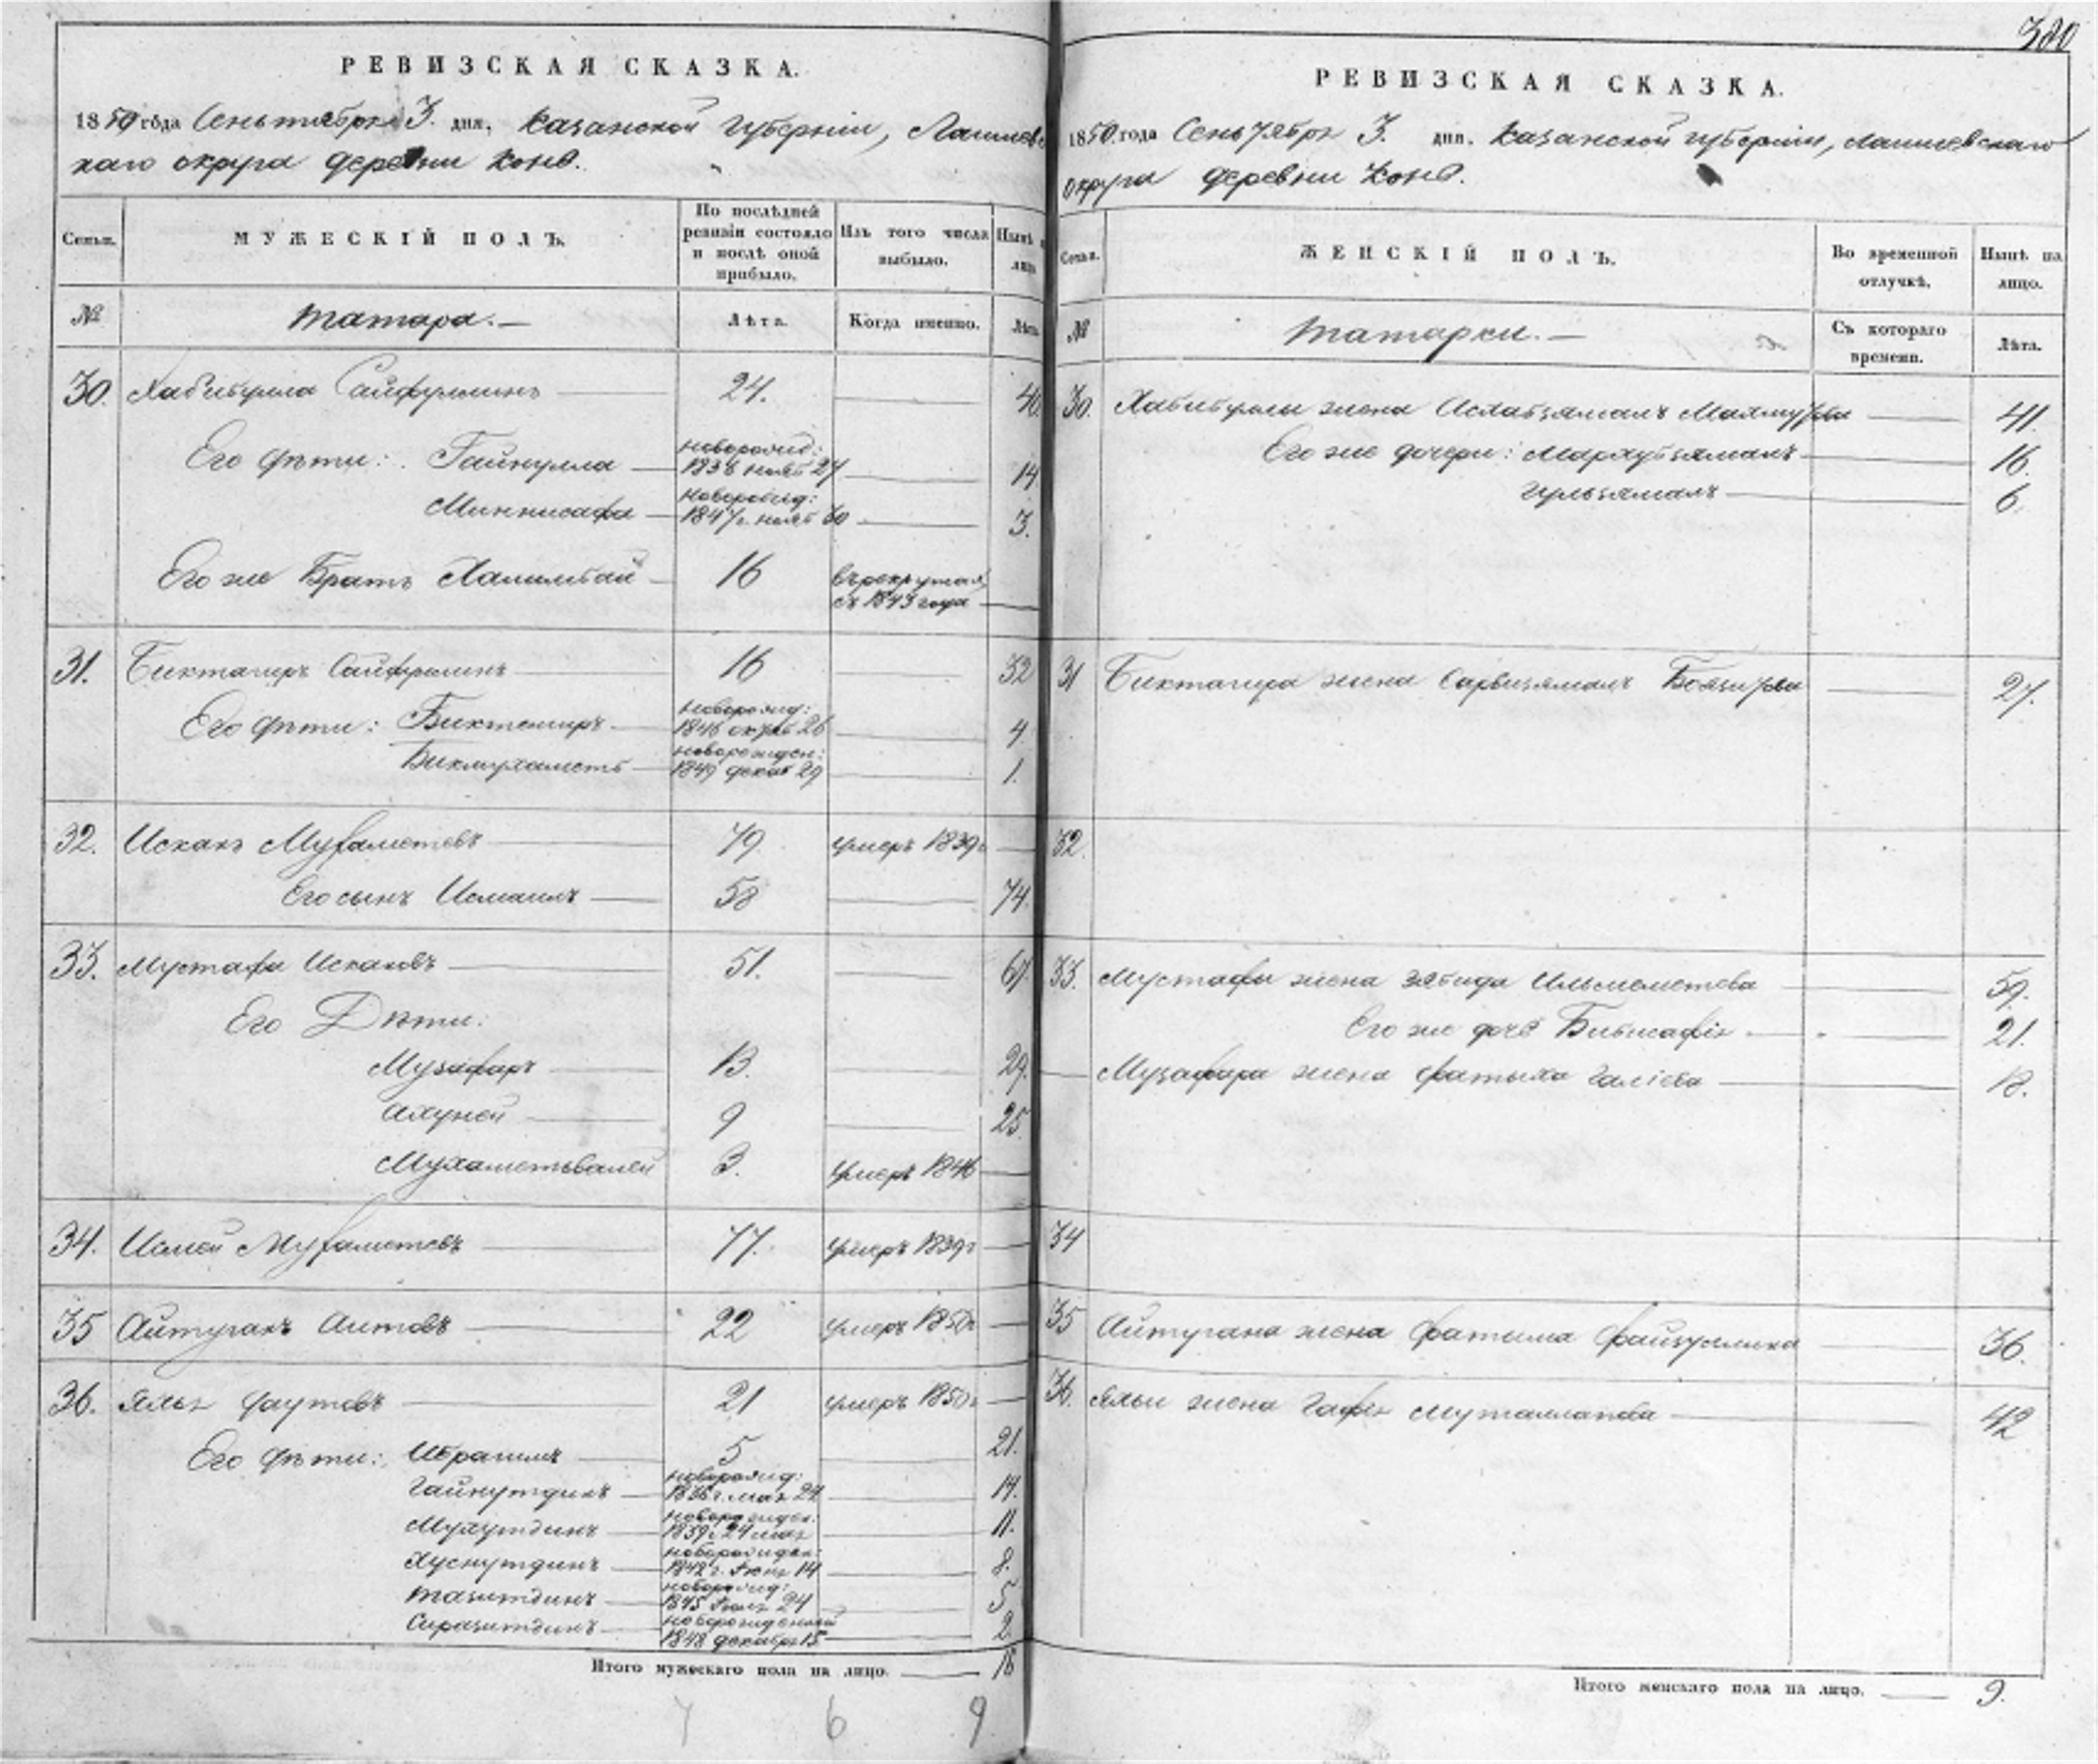 380
РЕВИЗСКАЯ СКАЗКА.
1850 года Сентября 3. дня, Казанской Губерніи, Лаишевс
каго округа деревни Конь.
Семьи. МУЖЕСКІЙ ПОЛЪ. По послѣдней ревизіи состояло и послѣ оной прибыло. Изъ того числа выбыло. Нынѣ на лицо
№ Татара.— Лѣта. Когда именно. Лѣта
30. Хабибулла Сайфуллинъ 24. 40.
Его дѣти: Гайнулла новорожд: 1836 нояб 27 14.
Миннисафа новорожд: 1847 г. нояб 30 3.
Его же Братъ 16 въ рекрутахъ съ 1843 года
31. Биктагиръ Сайфуллинъ 16 32
Его дѣти: Биктемиръ новорожд: 1846 октяб 26 4
Бикмухаметь новорожден: 1849 декаб 29 1.
32. Исхакъ Мухаметевъ 79. умеръ 1839г
Его сынъ Исмаилъ 58 74.
33. Мустафа Исхаковъ 51. 67
Его Дѣти:
Музафаръ 13. 29.
9 25
Мухаметьвалей 3. умеръ 1846
34. Мухаметевъ 77. умеръ 1839г
35 Айтуганъ Аитовъ 22 умеръ 1850г
36. Яхья Даутовъ 21 умеръ 1850г
Его дѣти: Ибрагимъ 5 21.
Гайнутдинъ новорожд: 1836 г. мая 24 14.
Мухутдинъ новорожден: 1839 г 24 мая 11.
Хуснутдинъ новорожден: 1842 г. Іюня 14 8.
Тазитдинъ новорожд: 1845 24 5
Сиразитдинъ новорожденный 1848 декабря 15 2.
Итого мужескаго пола на лицо. 18
7 6 9
РЕВИЗСКАЯ СКАЗКА.
1850. года Сентября 3. дня. Казанской губерніи, Лаишевскаго
округа деревни Конь.
Семьи. ЖЕНСКІЙ ПОЛЪ. Во временной отлучкѣ. Нынѣ на лицо.
№ Татарки.— Съ котораго времени. Лѣта.
30. Хабибуллы жена 41.
Его же дочери: 16.
Гульзямалъ 6.
31 Биктагира жена Сарвизямалъ 27.
32.
33. Мустафы жена Зябида 59.
Его же дочь Бибисафія 21.
Музафара жена Фатыха Галіева 18.
34
35 Айтугана жена Фатыма Файзуллина 36.
36. Яхьи жена Гафія 42
Итого женскаго пола на лицо. 9.